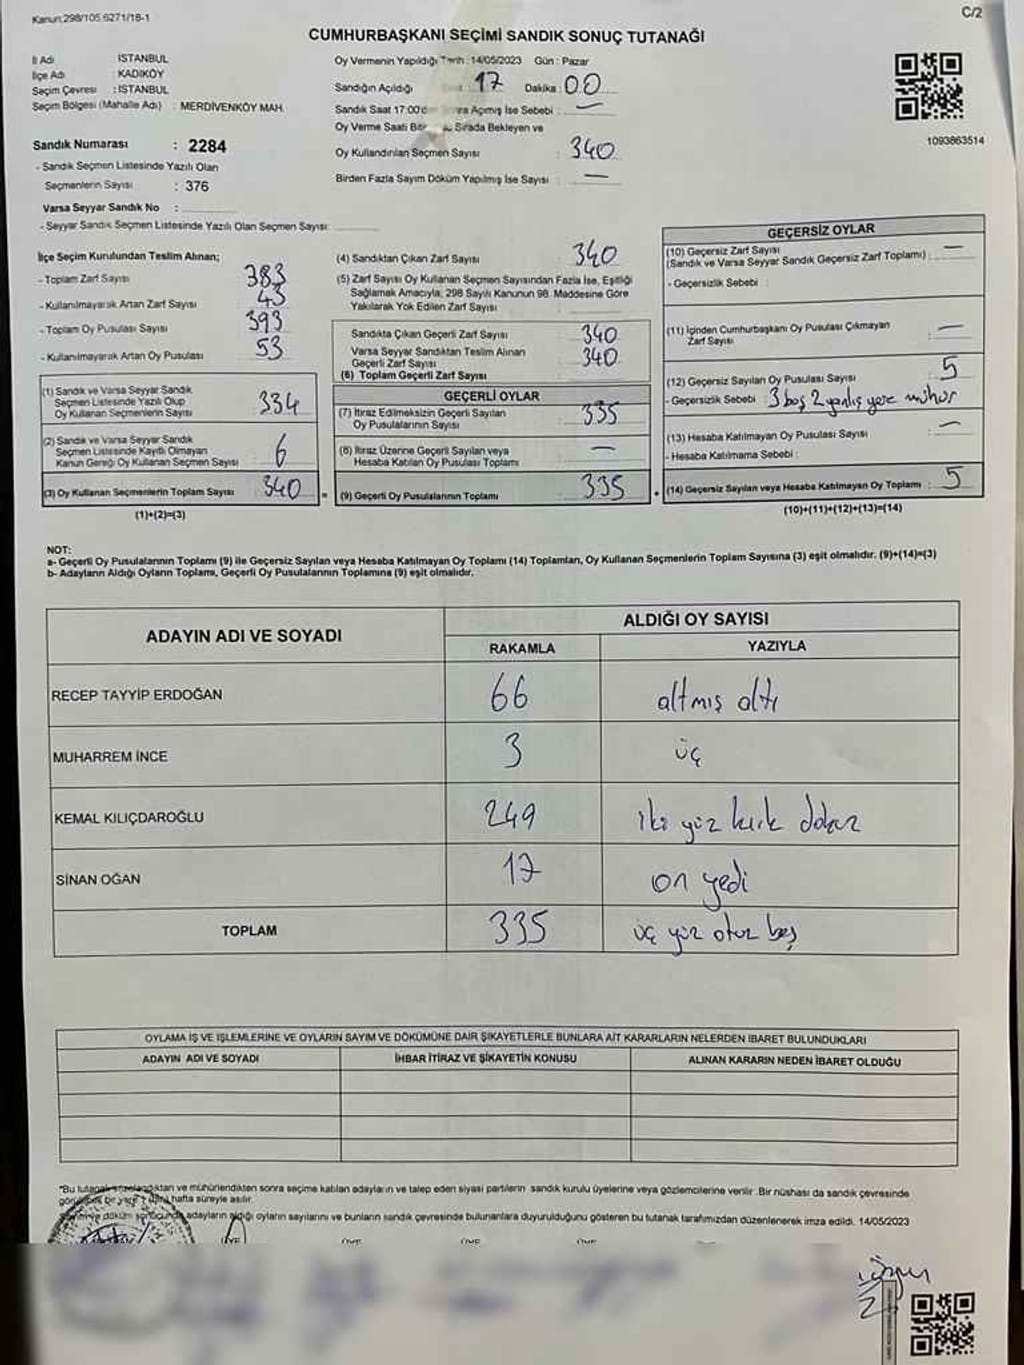 Kanun:298/105,6271/18-1
C/2
CUMHURBAŞKANI SEÇİMİ SANDIK SONUÇ TUTANAĞI
İl Adı : İSTANBUL
İlçe Adı : KADIKÖY
Seçim Çevresi : İSTANBUL
Seçim Bölgesi (Mahalle Adı) : MERDİVENKÖY MAH.
Sandık Numarası : 2284
- Sandık Seçmen Listesinde Yazılı Olan
Seçmenlerin Sayısı : 376
Varsa Seyyar Sandık No :
- Seyyar Sandık Seçmen Listesinde Yazılı Olan Seçmen Sayısı:
Oy Vermenin Yapıldığı Tarih : 14/05/2023 Gün : Pazar
Sandığın Açıldığı 17 Dakika 00
Sandık Saat 17:00'den Açımış İse Sebebi : —
Oy Verme Saati Sırada Bekleyen ve
Oy Kullandırılan Seçmen Sayısı : 340
Birden Fazla Sayım Döküm Yapılmış İse Sayısı : —
1093863514
İlçe Seçim Kurulundan Teslim Alınan;
- Toplam Zarf Sayısı 383
- Kullanılmayarak Artan Zarf Sayısı 43
- Toplam Oy Pusulası Sayısı 393
- Kullanılmayarak Artan Oy Pusulası 53
(1) Sandık ve Varsa Seyyar Sandık
Seçmen Listesinde Yazılı Olup
Oy Kullanan Seçmenlerin Sayısı 334
(2) Sandık ve Varsa Seyyar Sandık
Seçmen Listesinde Kayıtlı Olmayan
Kanun Gereği Oy Kullanan Seçmen Sayısı 6
(3) Oy Kullanan Seçmenlerin Toplam Sayısı 340
(1)+(2)=(3)
(4) Sandıktan Çıkan Zarf Sayısı 340
(5) Zarf Sayısı Oy Kullanan Seçmen Sayısından Fazla İse, Eşitliği
Sağlamak Amacıyla, 298 Sayılı Kanunun 98. Maddesine Göre
Yakılarak Yok Edilen Zarf Sayısı :
Sandıkta Çıkan Geçerli Zarf Sayısı 340
Varsa Seyyar Sandıktan Teslim Alınan
Geçerli Zarf Sayısı 340
(6) Toplam Geçerli Zarf Sayısı
GEÇERLİ OYLAR
(7) İtiraz Edilmeksizin Geçerli Sayılan
Oy Pusulalarının Sayısı 335
(8) İtiraz Üzerine Geçerli Sayılan veya
Hesaba Katılan Oy Pusulası Toplamı —
(9) Geçerli Oy Pusulalarının Toplamı 335
GEÇERSİZ OYLAR
(10) Geçersiz Zarf Sayısı
(Sandık ve Varsa Seyyar Sandık Geçersiz Zarf Toplamı) : —
- Geçersizlik Sebebi :
(11) İçinden Cumhurbaşkanı Oy Pusulası Çıkmayan
Zarf Sayısı —
(12) Geçersiz Sayılan Oy Pusulası Sayısı : 5
- Geçersizlik Sebebi 3 boş 2 yanlış yere mühür
(13) Hesaba Katılmayan Oy Pusulası Sayısı : —
- Hesaba Katılmama Sebebi :
(14) Geçersiz Sayılan veya Hesaba Katılmayan Oy Toplamı : 5
(10)+(11)+(12)+(13)=(14)
NOT:
a- Geçerli Oy Pusulalarının Toplamı (9) ile Geçersiz Sayılan veya Hesaba Katılmayan Oy Toplamı (14) Toplamları, Oy Kullanan Seçmenlerin Toplam Sayısına (3) eşit olmalıdır. (9)+(14)=(3)
b- Adayların Aldığı Oyların Toplamı, Geçerli Oy Pusulalarının Toplamına (9) eşit olmalıdır.
ADAYIN ADI VE SOYADI ALDIĞI OY SAYISI
RAKAMLA YAZIYLA
RECEP TAYYİP ERDOĞAN 66 altmış altı
MUHARREM İNCE 3 üç
KEMAL KILIÇDAROĞLU 249 iki yüz kırk dokuz
SİNAN OĞAN 17 on yedi
TOPLAM 335 üç yüz otuz beş
OYLAMA İŞ VE İŞLEMLERİNE VE OYLARIN SAYIM VE DÖKÜMÜNE DAİR ŞİKAYETLERLE BUNLARA AİT KARARLARIN NELERDEN İBARET BULUNDUKLARI
ADAYIN ADI VE SOYADI İHBAR İTİRAZ VE ŞİKAYETİN KONUSU ALINAN KARARIN NEDEN İBARET OLDUĞU
*Bu tutanak ve mühürlendikten sonra seçime katılan adayların ve talep eden siyasi partilerin sandık kurulu üyelerine veya gözlemcilerine verilir. Bir nüshası da sandık çevresinde
bir yere hafta süreyle asılır.
döküm sonucunda adayların aldığı oyların sayılarını ve bunların sandık çevresinde bulunanlara duyurulduğunu gösteren bu tutanak tarafımızdan düzenlenerek imza edildi. 14/05/2023